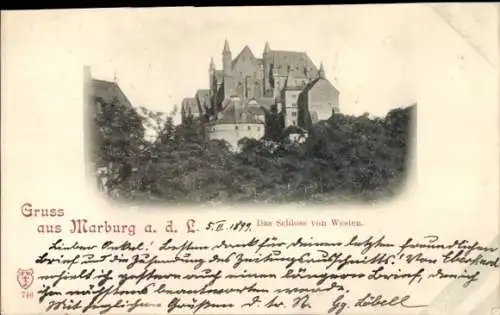 Gruss
aus Marburg a. d. L. 5. II. 1899. Das Schloss von Westen.
Lieber Onkel! Besten Dank für deinen letzten freundlichen
und die Zusendung des Zeitungsausschnitts! Von Eberhard
erhielt ich gestern auch einen längeren Brief, den ich
ihm nächstens beantworten werde
Mit herzlichen Grüßen d. tr. N. Löbell
746